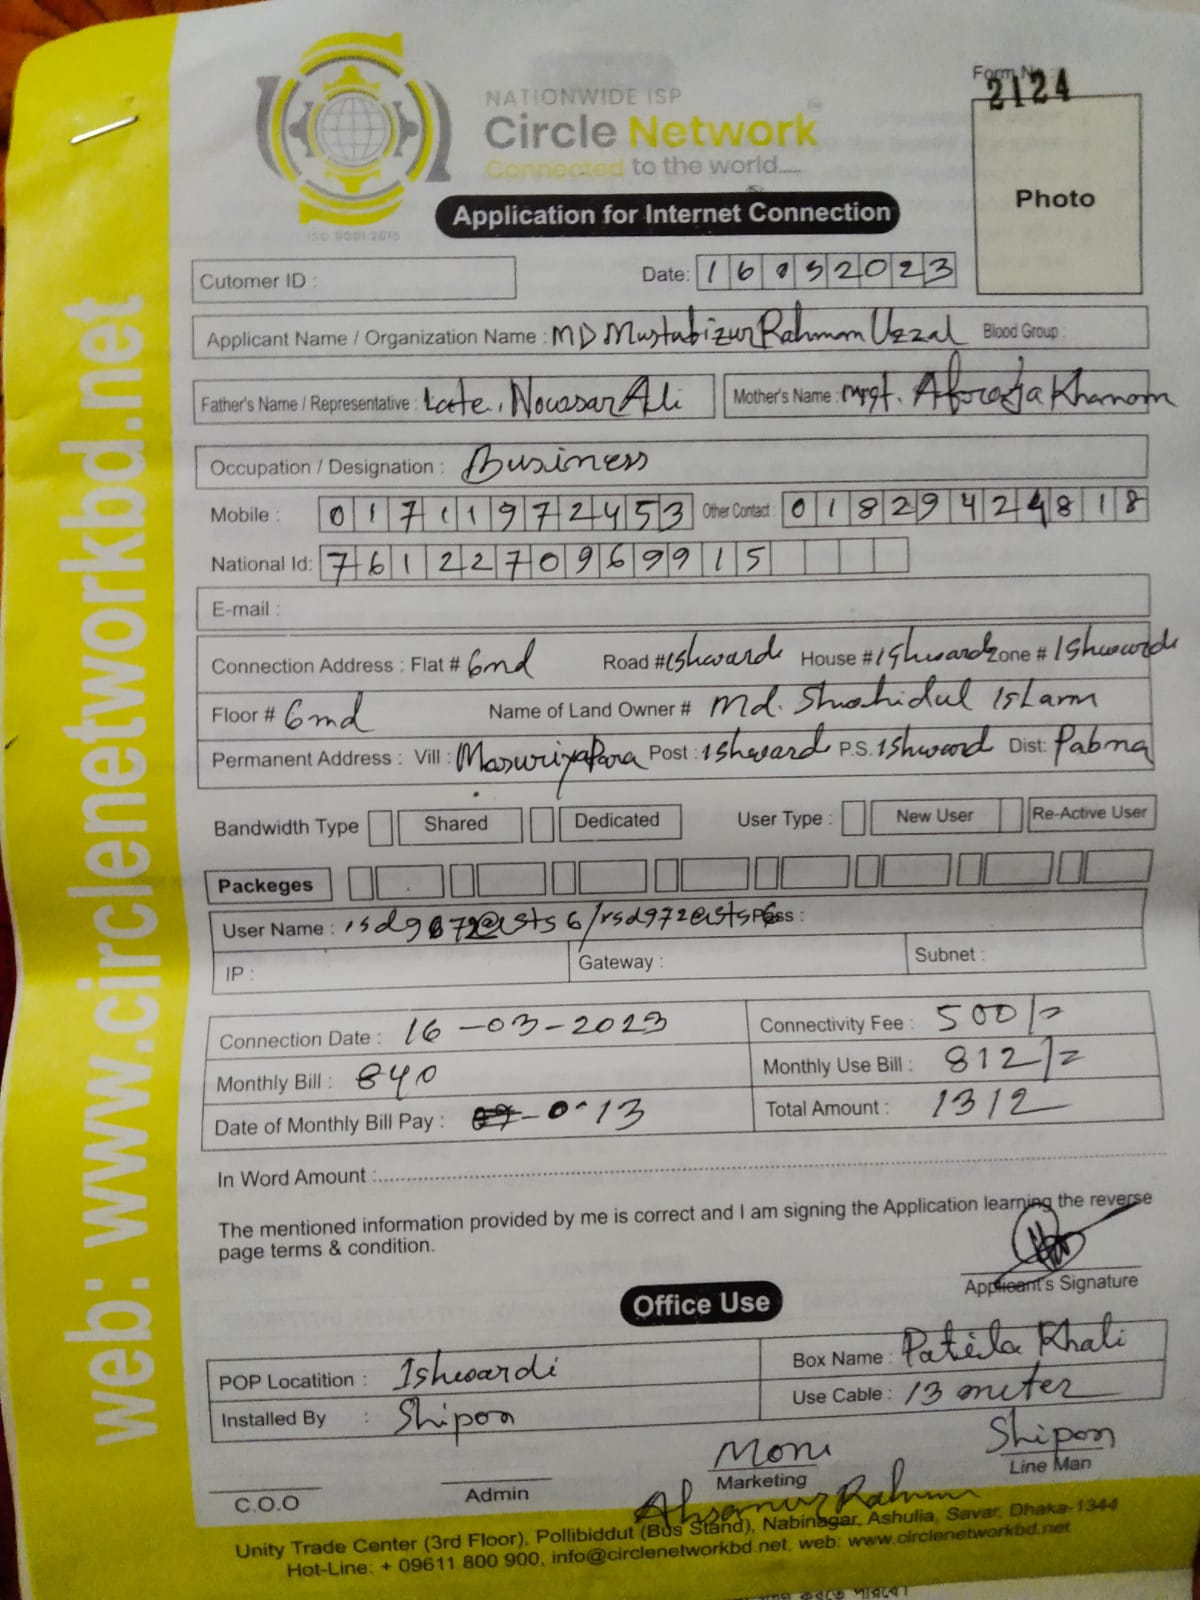 Form No
2124
NATIONWIDE ISP
Circle Network
Connected to the world.....
ISO 9001:2015
Photo
Application for Internet Connection
Cutomer ID :
Date: 16032023
Applicant Name / Organization Name : MD Mustabizur Rahman Uzzal Blood Group :
Father's Name / Representative : Late. Nowsar Ali Mother's Name : Afroja Khanom
Occupation / Designation : Business
Mobile : 01711972453 Other Contact : 01829424818
National Id: 7612270969915
E-mail :
Connection Address : Flat # 6md Road # ishwardi House # ishwardi Zone # Ishwardi
Floor # 6md Name of Land Owner # Md. Shahidul Islam
Permanent Address : Vill : Masuriyapara Post : Ishward P.S. Ishward Dist: Pabna
Bandwidth Type Shared Dedicated User Type : New User Re-Active User
Packeges
User Name : /rsd972@ists6 Pass :
IP : Gateway : Subnet :
Connection Date : 16-03-2023 Connectivity Fee : 500/=
Monthly Bill : 840 Monthly Use Bill : 812/=
Date of Monthly Bill Pay : 13 Total Amount : 1312
In Word Amount :
The mentioned information provided by me is correct and I am signing the Application learning the reverse
page terms & condition.
Applicant's Signature
Office Use
POP Locatition : Ishwardi Box Name : Pateila Khali
Installed By : Shipon Use Cable : 13 meter
C.O.O Admin Moni Marketing Shipon Line Man
Ahsanur Rahman
Unity Trade Center (3rd Floor), Pollibiddut (Bus Stand), Nabinagar, Ashulia, Savar, Dhaka-1344
Hot-Line: + 09611 800 900, info@circlenetworkbd.net, web: www.circlenetworkbd.net
web: www.circlenetworkbd.net